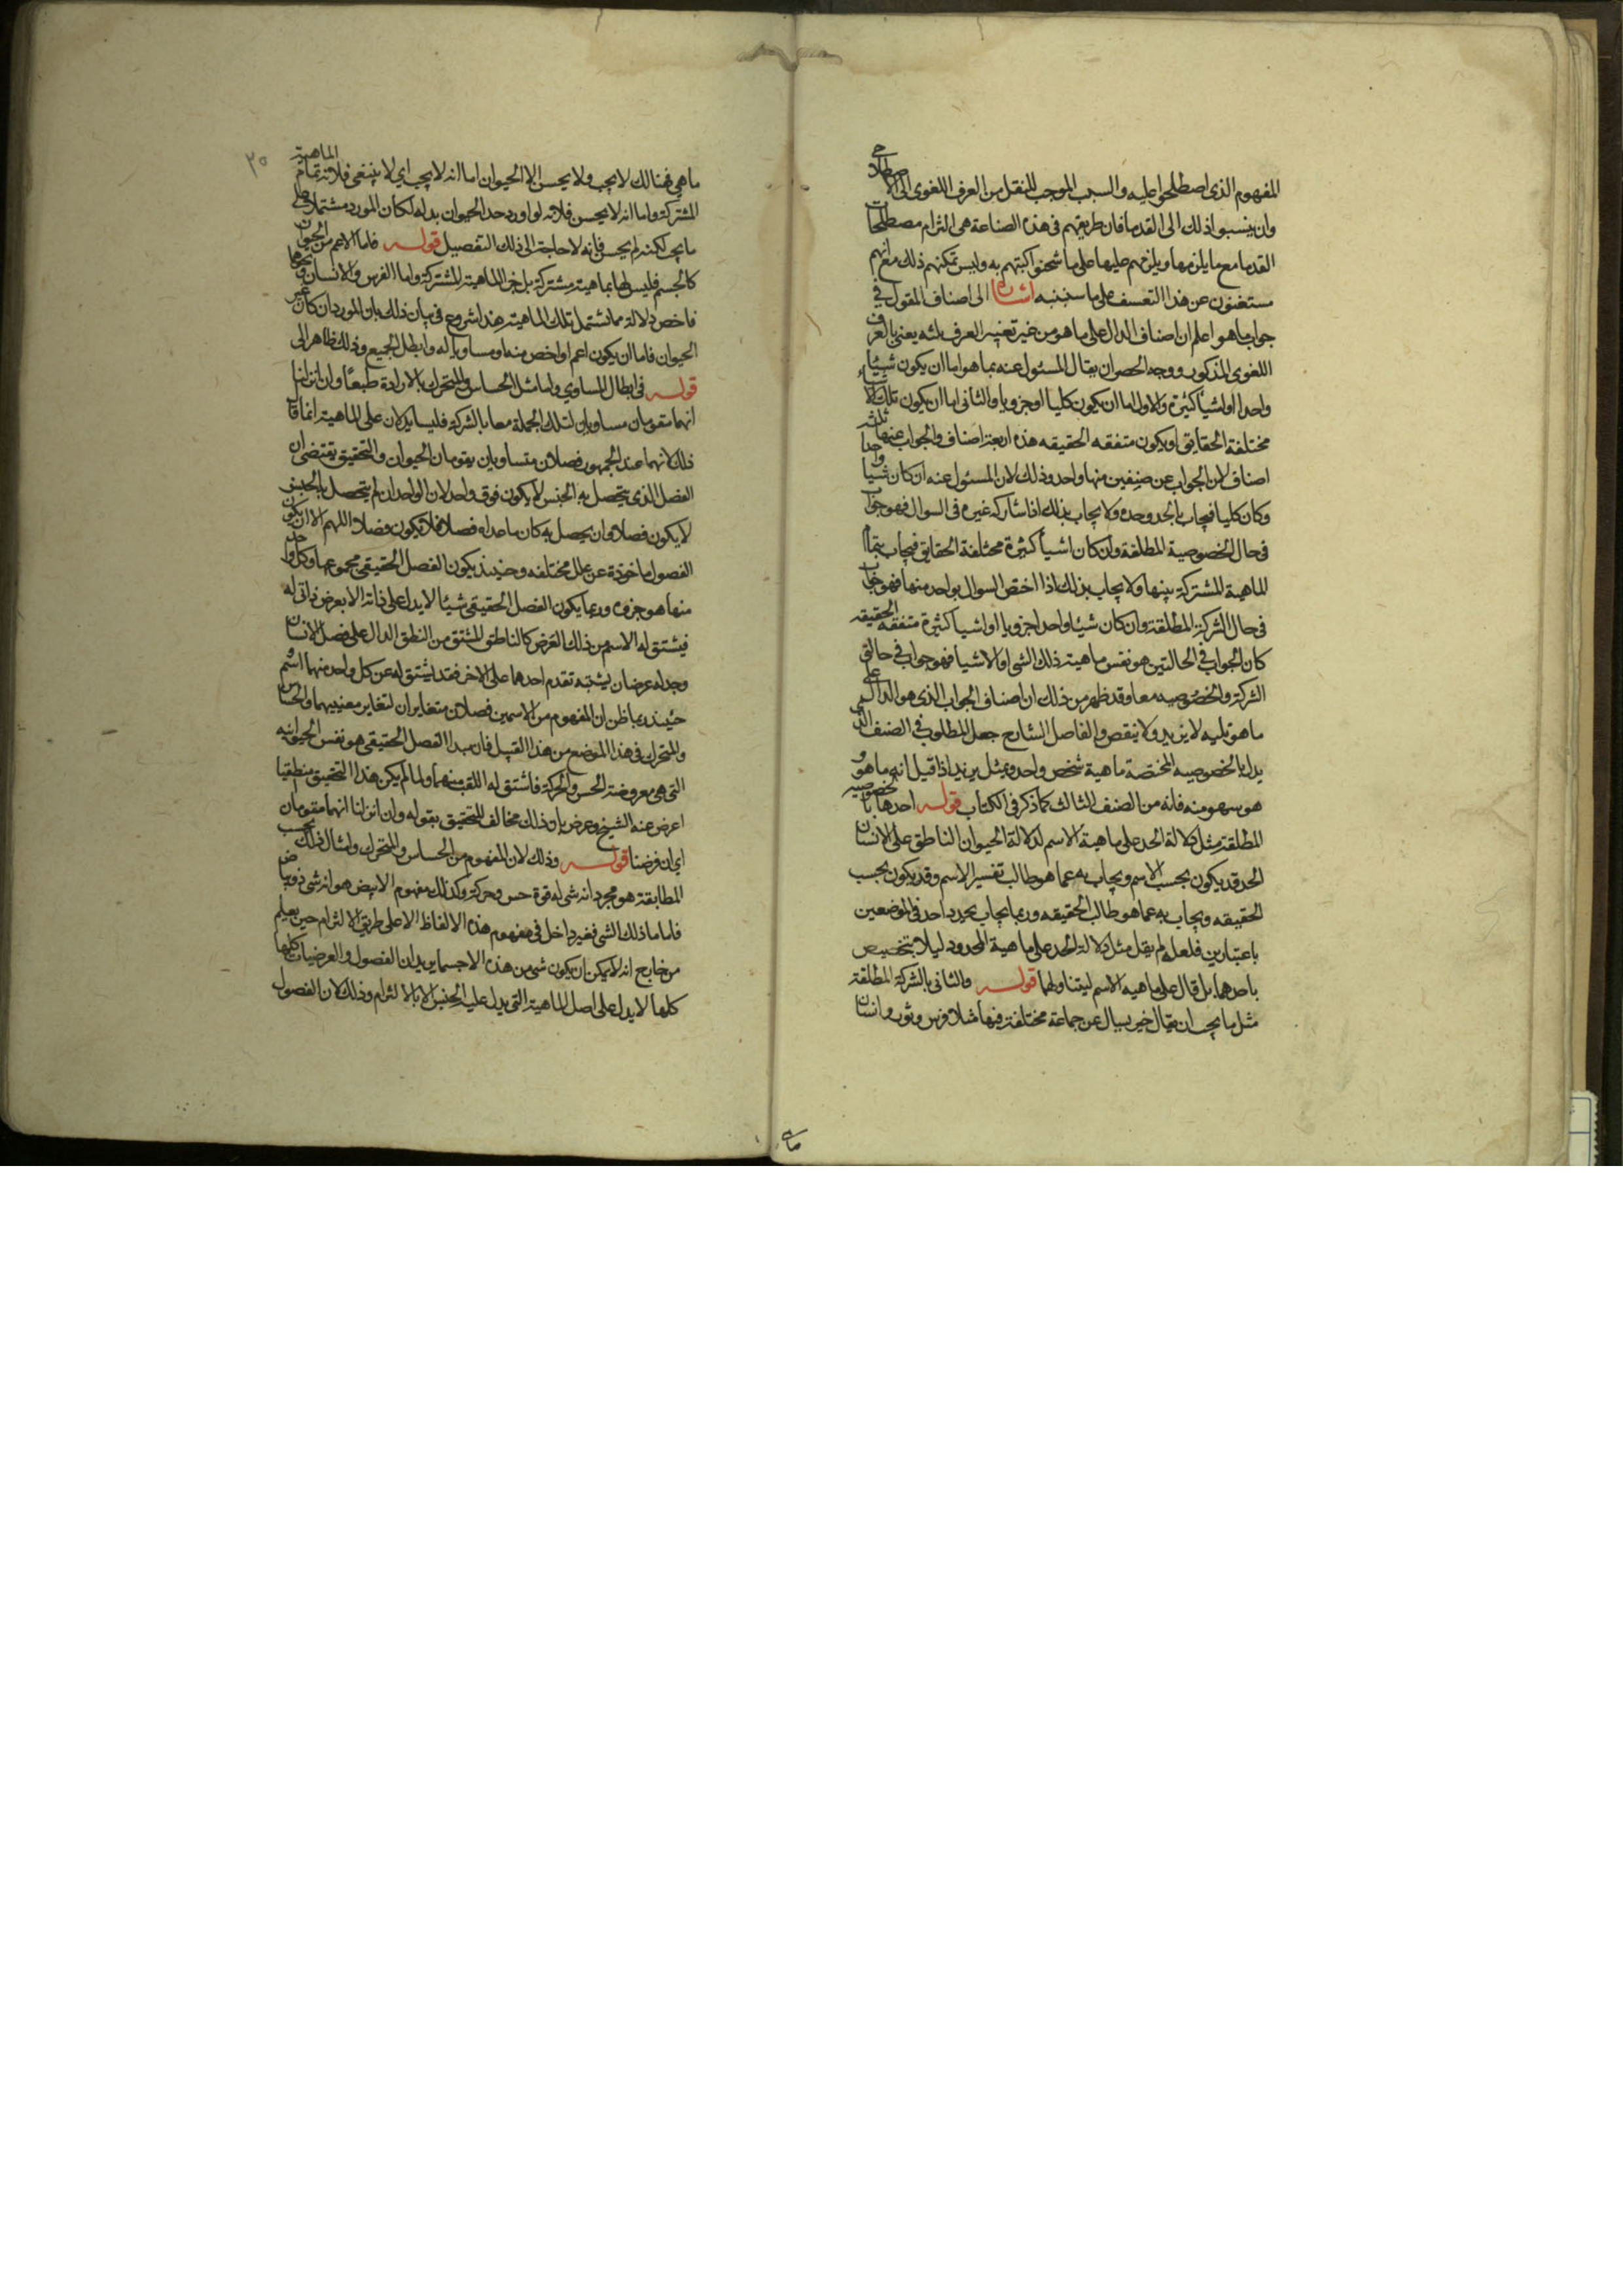 المفهوم الذى اصطلحوا عليه والسبب الموجب للنقل من العرف اللغوى الى الاصطلاحى
وان ينسبوا ذلك الى القدما فان طريقهم فى هذه الصناعة هى التزام مصطلحات
القدما مع ما يلزمها ويلزمهم عليها على ما شحنوا كتبهم به وليس تمكنهم ذلك مع انهم
مستغنون عن هذا التعسف على ما سنبنبه اشارة الى اصناف المقول فى
جواب ما هو اعلم ان اصناف الدال على ما هو من غير تغيير العرف ثلثه يعنى بالعرف
اللغوى المذكور ووجه الحصر ان يقال المسئول عنه بما هو اما ان يكون شيئا
واحدا او اشيا كثيرة والاول اما ان يكون كليا او جزويا والثانى اما ان يكون تلك الاشياء
مختلفة الحقايق او يكون متفقه الحقيقه هذه اربعة اصناف والجواب عنها ثلثه
اصناف لان الجواب عن صنفين منها واحد وذلك لان المسئول عنه ان كان شيا واحدا
وكان كليا فيجاب بالحد وحده ولا يجاب بذلك اذا شاركه غيره فى السوال فهو جواب
فى حال الخصوصية المطلقة وان كان اشيأ كثيرة مختلفة الحقايق فيجاب بتمام
الماهية المشتركة بينها ولا يجاب بذلك اذا اختص السوال بواحد منها فهو جواب
فى حال الشركة المطلقة وان كان شيئا واحدا جزويا او اشيا كثيرة متفقه الحقيقه
كان الجواب فى الحالتين هو نفس ماهية ذلك الشى او الاشيا فهو جواب فى حالتى
الشركة والخصوصيه معا وقد ظهر من ذلك ان اصناف الجواب الذى هو الدال على
ما هو ثلثه لا يزيد ولا ينقص والفاضل الشارح جعل المطلوب فى الصنف الذى
يدل بالخصوصيه المختصة ماهية شخص واحد ومثل بزيد اذا قيل انه ما هو و
هو سهو منه فانه من الصنف الثالث كما ذكر فى الكتاب قوله احدها بالخصوصيه
المطلقة مثل دلالة الحد على ماهية الاسم لدلالة الحيوان الناطق على الانسان
الحد قد يكون بحسب الاسم ويجاب به عما هو طالب تفسير الاسم وقد يكون بحسب
الحقيقه ويجاب به عما هو طالب الحقيقه وربما يجاب بحد واحد فى الموضعين
باعتبارين فلعله لم يقل مثل دلالة الحد على ماهية المحدود ليلا يتخصص
باحدهما بل قال على ماهيه الاسم ليتناولهما قوله والثانى بالشركة المطلقة
مثل ما يجب ان يقال حين يسال عن جماعة مختلفة فيها مثلا فرس وثور وانسان
ما هى
٣٥
ما هى فهنالك لا يجب ولا يحسن الا الحيوان اما انه لا يجب اى لا ينبغى فلانه تمام الماهية
المشتركة واما انه لا يحسن فلانه لو اورد حد الحيوان بدله لكان المورد مشتملا على
ما يجب لكنه لم يحسن فانه لا حاجة الى ذلك التفصيل قوله فاما الاعم من الحيوان
كالجسم فليس لها بماهية مشتركة بل جزء الماهية المشتركة واما الفرس والانسان ونحوها
فاخص دلالة مما تشتمل تلك الماهية هذا شروع فى بيان ذلك بان المورد ان كان غير
الحيوان فاما ان يكون اعم او اخص منه او مساويا له وابطل الجميع وذلك ظاهر الى
قوله فى ابطال المساوى واما مثل الحساس والمتحرك بالارادة طبعا وان انزلنا
انهما مقومان مساويان لتلك الجملة معا بالشركة فليسا يدلان على الماهية انما قال
ذلك لانهما عند الجمهور فصلان متساويان يقومان الحيوان والتحقيق يقتضى ان
الفصل الذى يتحصل به الجنس لا يكون فوق واحد لان الواحد ان لم يتحصل به الجنس
لا يكون فصلا وان يحصل به كان ما عداه فصلا فلا يكون فصلا اللهم الا ان يكون
الفصول ماخوذة عن علل مختلفه وحينئذ يكون الفصل الحقيقى مجموعها وكل واحد
منها هو جزوه وربما يكون الفصل الحقيقى شيئا لا يدل على ذاته الا بعرض ذاتى له
فيشتق له الاسم من ذلك العرض كالناطق المشتق من النطق الدال على فصل الانسان
وجد له عرضان يشتبه تقدم احدهما على الاخر فقد اشتق له عن كل واحد منهما اسم و
حينئذ ربما ظن ان المفهوم من الاسمين فصلان متغايران لتغاير معنييهما والحساس
والمتحرك فى هذا الموضع من هذا القبيل فان مبدا الفصل الحقيقى هو نفس الحيوانيه
التى هى معروضة الحس والحركة فاشتق له اللقب منهما ولما لم يكن هذا التحقيق منطقيا
اعرض عنه الشيخ وعرض بان ذلك مخالف للتحقيق بقوله وان انزلنا انهما مقومان
اى ان فرضنا قوله وذلك لان المفهوم من الحساس والمتحرك وامثال ذلك بحسب
المطابقة هو مجرد انه شى له قوة حس وحركة وكذلك مفهوم الابيض هو انه شى ذو بياض
فاما ما ذلك الشى فغير داخل فى مفهوم هذه الالفاظ الا على طريق الالتزام حين يعلم
من خارج انه لا يمكن ان يكون شى من هذه الا جسما يريد ان الفصول والعرضيات كلها
كلها لا يدل على اصل الماهية التى يدل عليه الجنس الا بالالتزام وذلك لان الفصول